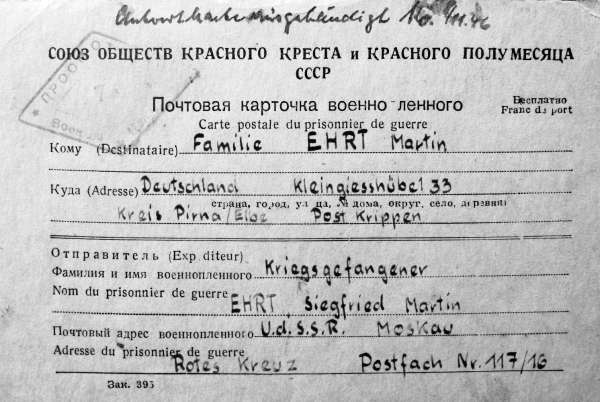 Antwortkarte ausgehändigt 16. VII. 46
СОЮЗ ОБЩЕСТВ КРАСНОГО КРЕСТА и КРАСНОГО ПОЛУМЕСЯЦА
СССР
Почтовая карточка военно ленного
Бесплатно
Carte postale du prisonnier de guerre
Franc de port
Кому (Destinataire) Familie EHRT Martin
Куда (Adresse) Deutschland Kleingiesshübel 33
страна, город, ул ца, № дома, округ, село, деревня
Kreis Pirna/Elbe Post Krippen
Отправитель (Exp diteur)
Фамилия и имя военнопленного Kriegsgefangener
Nom du prisonnier de guerre
EHRT Siegfried Martin
Почтовый адрес военнопленного U.d.S.S.R. Moskau
Adresse du prisonnier de guerre
Rotes Kreuz Postfach Nr. 117/16
Зак. 395